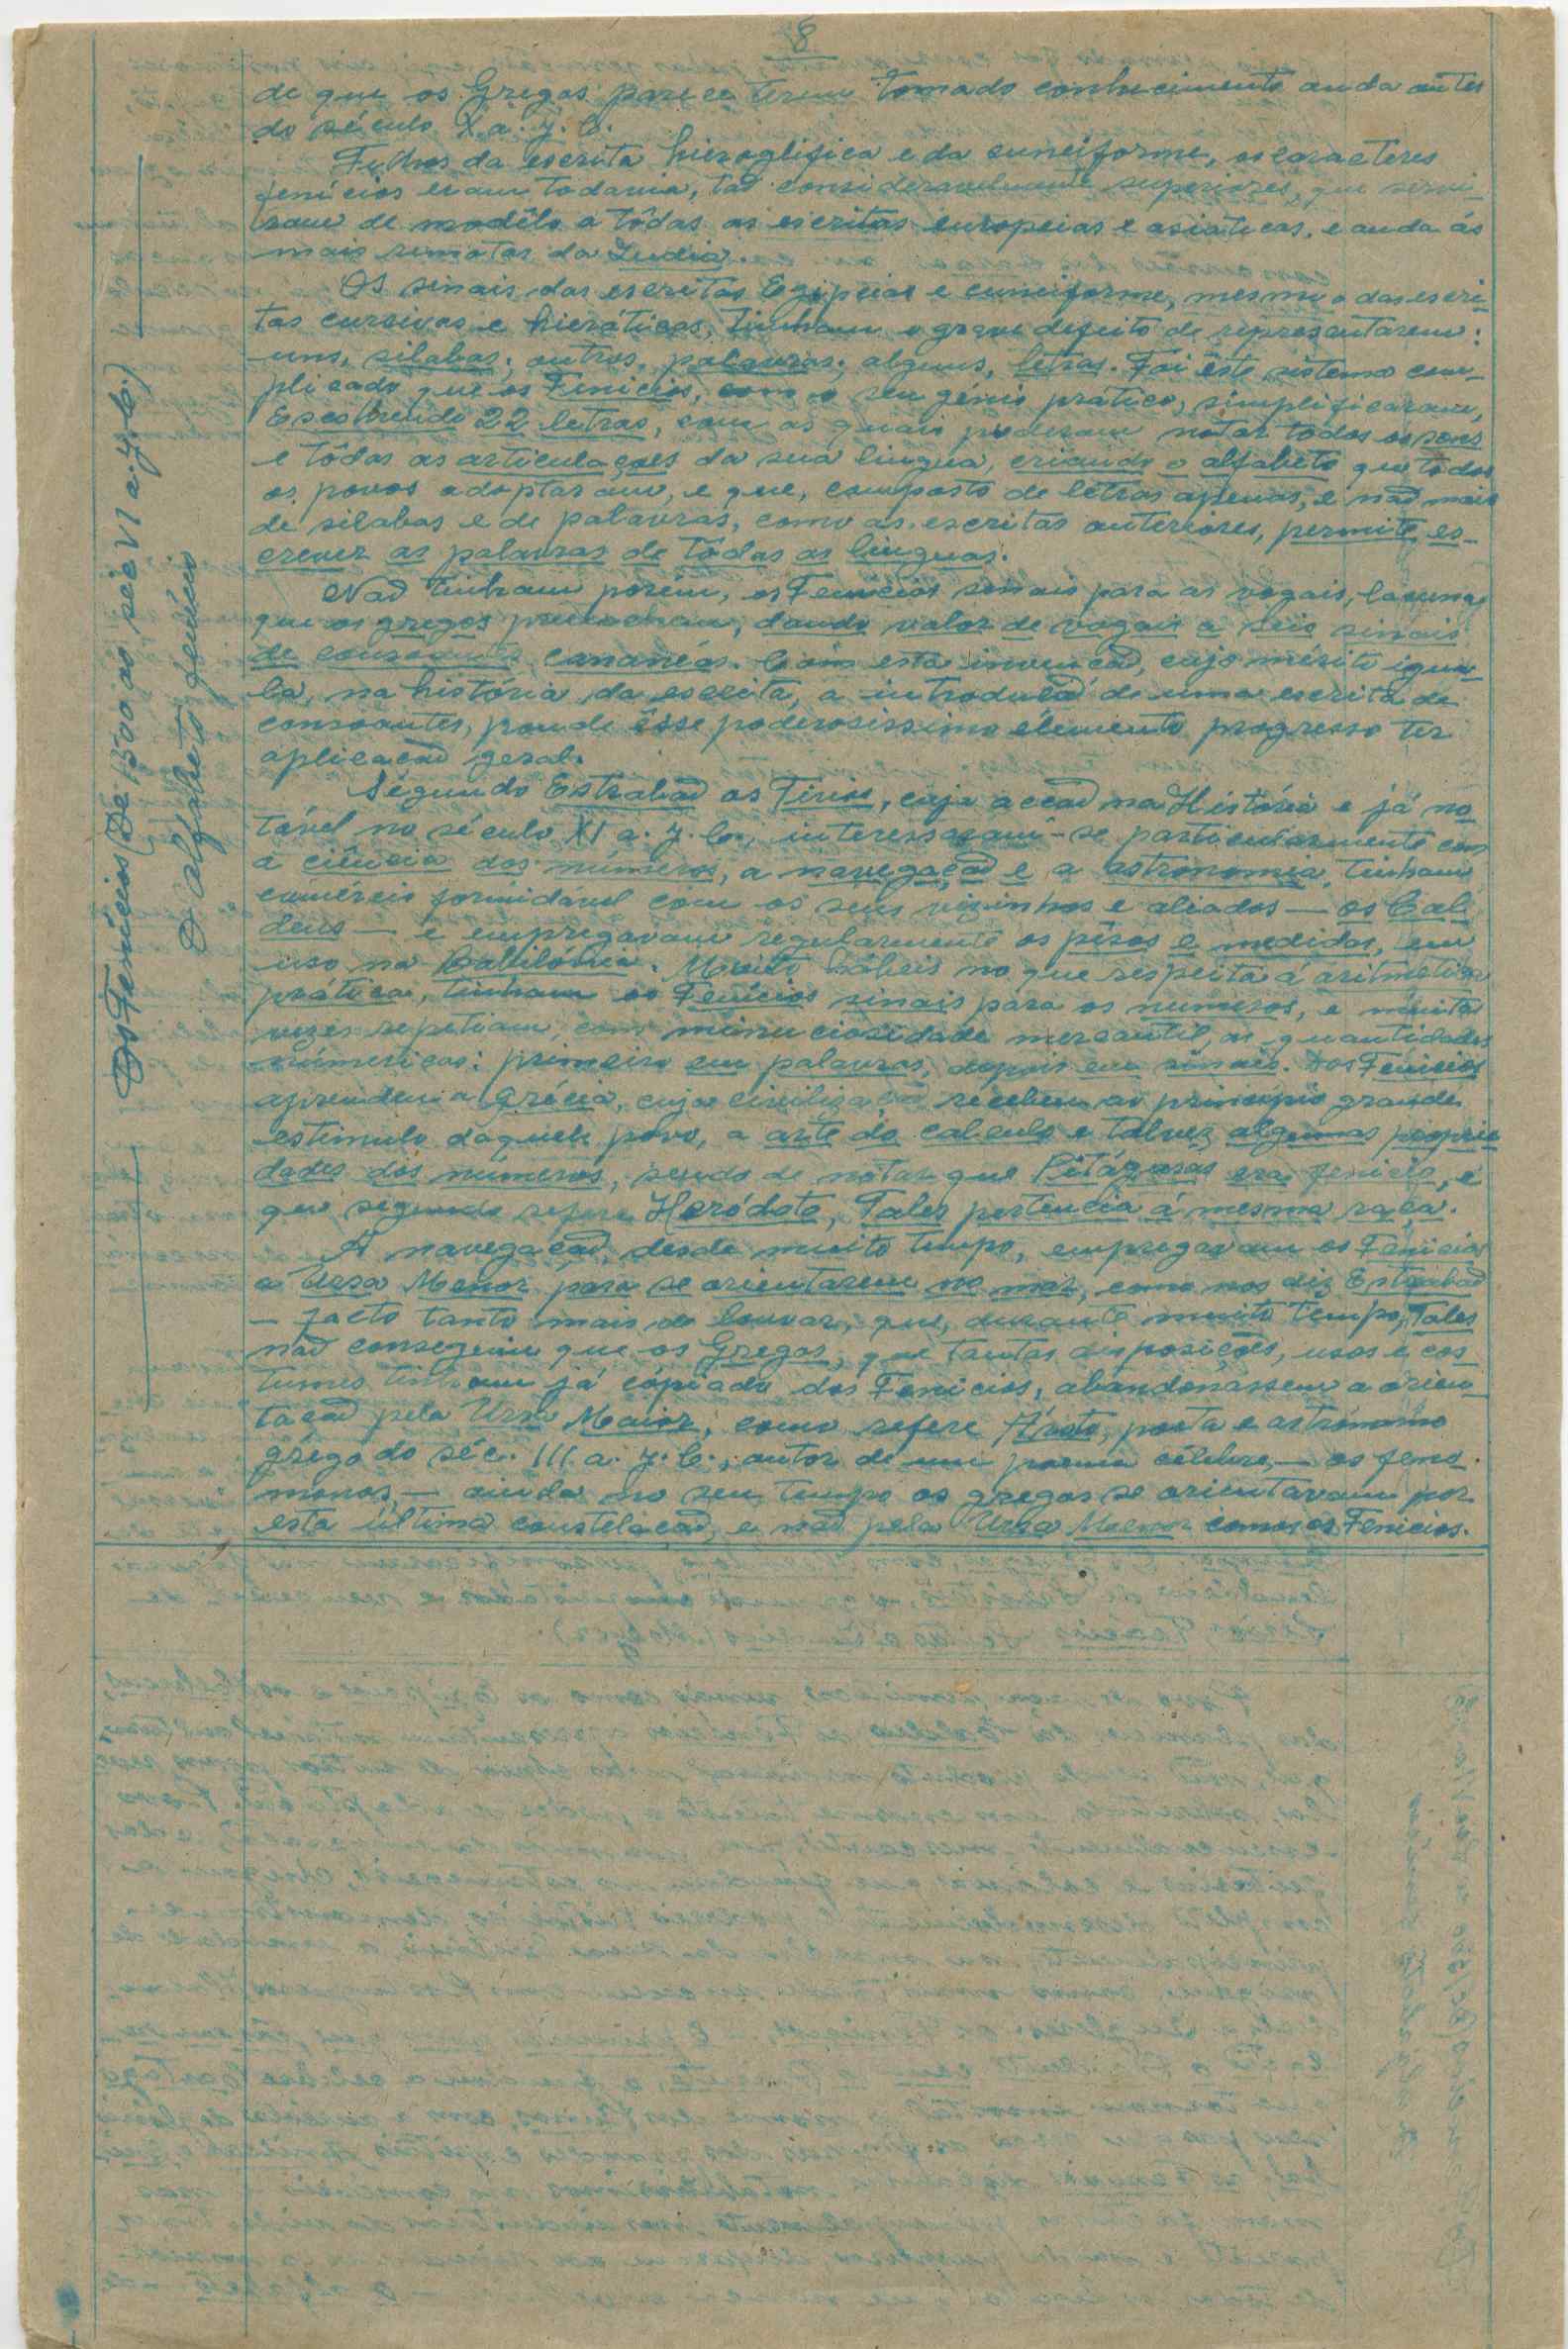 8
de que os Gregos parece terem tomado conhecimento ainda antes
do século X a. J. C.
Filhos da escrita hieroglífica e da cuneiforme, os caracteres
fenícios eram todavia, tão consideravelmente superiores, que servi-
ram de modêlo a tôdas as escritas europeias e asiaticas, e ainda ás
mais remotas da India.
Os sinais das escritas Egipcias e cuneiforme, mesmo o das escri-
tas cursivas e hieráticas, tinham o grave defeito de representarem:
uns, silabas; outros, palavras; alguns, letras. Foi êste sistema com-
plicado que os Fenícios, com o seu génio prático, simplificaram,
Escolhendo 22 letras, com as quais puderam notar todos os sons
e tôdas as articulações da sua lingua, criando o alfabeto que todos
os povos adoptaram, e que, composto de letras apenas, e não mais
de silabas e de palavras, como as escritas anteriores, permite es-
crever as palavras de tôdas as linguas.
Não tinham porém, os Fenícios sinais para as vogais, lacuna
que os gregos preencheram, dando valor de vogais a seis sinais
de consoantes cananéas. Com esta invenção, cujo mérito igua-
la, na história da escrita, a introdução de uma escrita de
consoantes, poude êsse poderosissimo elemento progresso ter
aplicação geral.
Segundo Estrabão os Tirios, cuja acção na História e já no-
tável no século XI a. J. C., interessaram-se particularmente com
a ciência dos números, a navegação e a astronomia, tinham
comércio formidável com os seus vizinhos e aliados — os Cal-
deus — e empregavam regularmente os pêsos e medidas, em
uso na Babilónia. Muito hábeis no que respeita á aritmetica
prática, tinham os Fenícios sinais para os números, e muitas
vezes repetiam, com minuciosidade mercantil, as quantidades
númericas: primeiro em palavras, depois em sinais. Dos Fenícios
aprendeu a Grécia, cuja civilização recebeu ao principio grande
estimulo daquele povo, a arte do calculo e talvez algumas proprie-
dades dos números, sendo de notar que Pitágoras era fenício, e
que segundo refere Heródoto, Tales pertencia á mesma raça.
A navegação, desde muito tempo, empregavam os Fenícios
a Ursa Menor para se orientarem no mar, como nos diz Estrabão
— facto tanto mais de louvar, que, durante muito tempo, Tales
não conseguiu que os Gregos, que tantas disposições, usos e cos-
tumes tinham já copiado dos Fenícios, abandonassem a orien-
tação pela Ursa Maior, como refere Árato, poeta e astrónomo
grego do séc. III. a. J. C., autor de um poema célebre, — os fenó-
menos, — ainda no seu tempo os gregos se orientavam por
esta última constelação, e não pela Ursa Menor como os Fenicios.
Os Fenícios (De 1500 ao séc. VI a. J. C.)
O alfabeto fenício